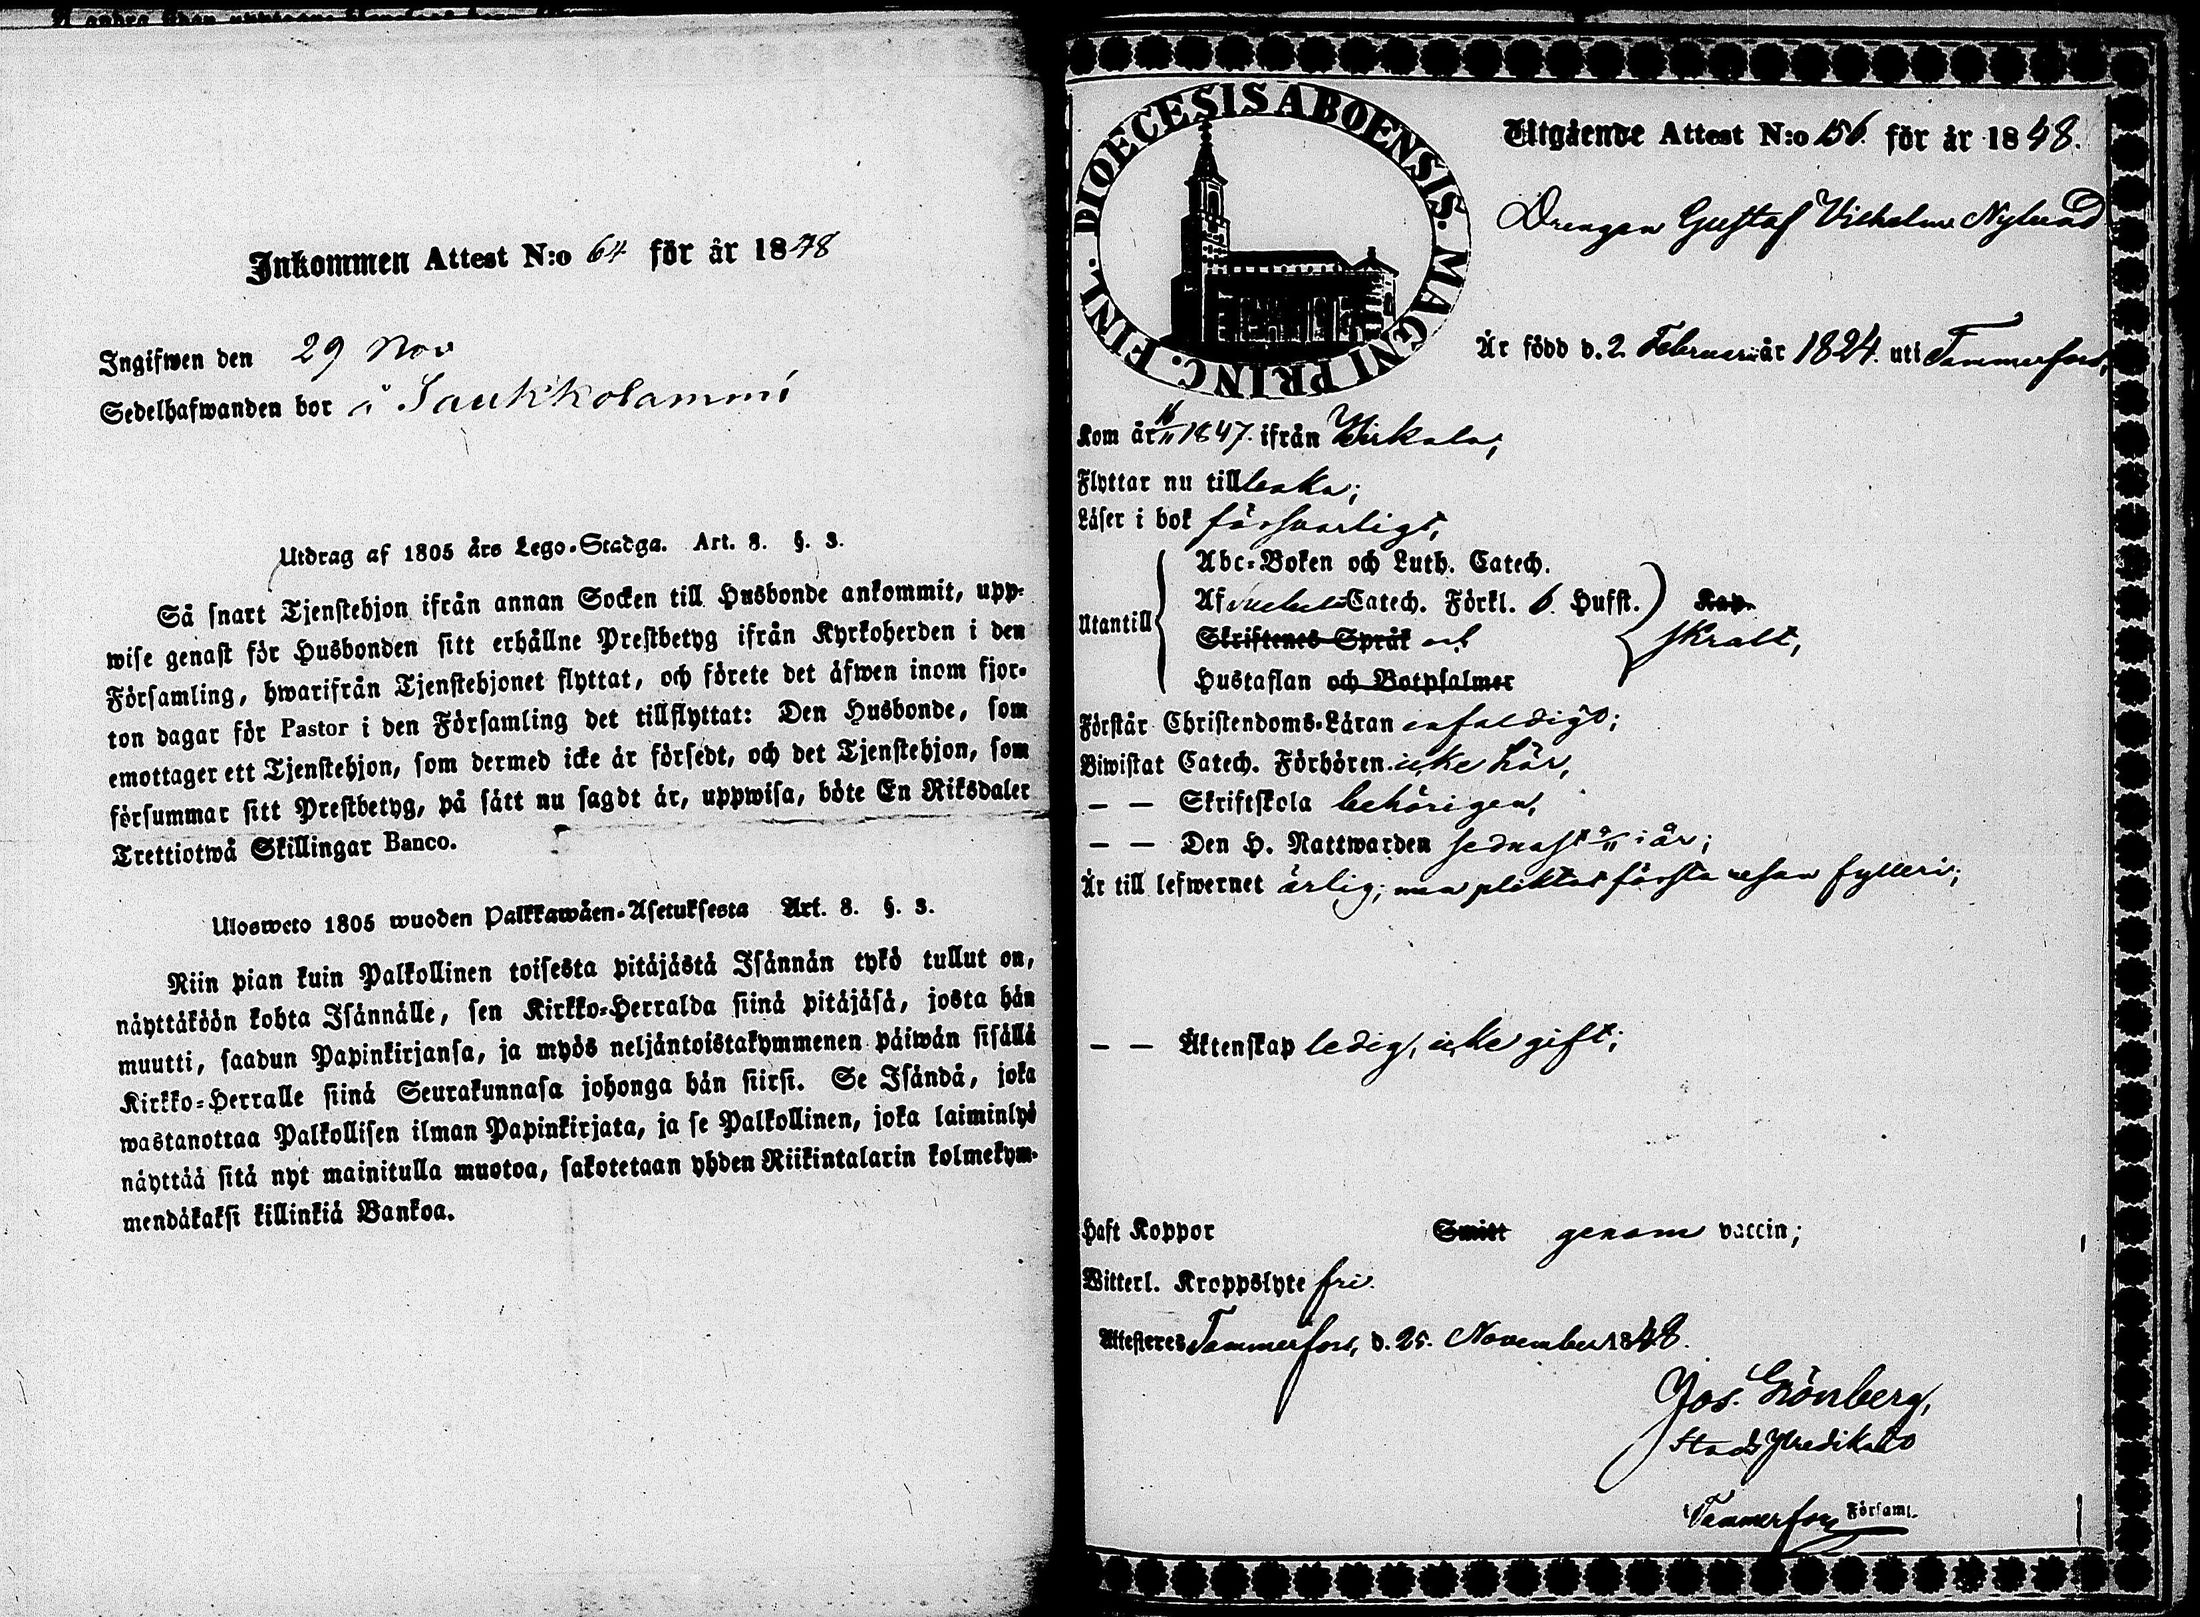 Inkommen Attest N:o 64 för år 1848
Ingifwen den 29 Nov
Sedelhafwanden bor å Saukkolammi
Utdrag af 1805 års Lego-Stadga. Art. 8. §. 3.
Så snart Tjenstehjon ifrån annan Socken till Husbonde ankommit, upp-
wise genast för Husbonden sitt erhållne Prestbetyg ifrån Kyrkoherden i den
Församling, hwarifrån Tjenstehjonet flyttat, och förete det äfwen inom fjor-
ton dagar för Pastor i den Församling det tillflyttat: Den Husbonde, som
emottager ett Tjenstehjon, som dermed icke är försedt, och det Tjenstehjon, som
försummar sitt Prestbetyg, på sätt nu sagdt är, uppwisa, böte En Riksdaler
Trettiotwå Skillingar Banco.
Ulosweto 1805 wuoden Palkkawäen-Asetuksesta Art. 8. §. 3.
Niin pian kuin Palkollinen toisesta pitäjästä Isännän tykö tullut on,
näyttäköön kohta Isännälle, sen Kirkko-Herralda siinä pitäjäsä, josta hän
muutti, saadun Papinkirjansa, ja myös neljäntoistakymmenen päiwän sisällä
Kirkko-Herralle siinä Seurakunnasa johonga hän siirsi. Se Isändä, joka
wastanottaa Palkollisen ilman Papinkirjata, ja se Palkollinen, joka laiminlyö
näyttää sitä nyt mainitulla muotoa, sakotetaan yhden Riikintalarin kolmekym-
mendäkaksi killinkiä Bankoa.
FINL. DIOECESIS ABOENSIS. MAGNI PRINC.
Utgående Attest N:o 156. för år 1848.
Drengen Gustaf Vilhelm Nylund
Är född d. 2. Februarii år 1824. uti Tammerfors,
Kom år 16/11 1847. ifrån Birkala,
Flyttar nu till
Läser i bok försvarligt,
Utantill
Abc-Boken och Luth. Catech.
Af Catech. Förkl. 6. Hufst. Kap.
Skriftenes Språk och
Hustaflan och Botpsalmer
Förstår Christendoms-Läran enfaldigt;
Biwistat Catech. Förhören icke här,
— — Skriftskola behörigen,
— — Den H. Nattwarden sednast i år;
Är till lefwernet ärlig; men pliktat första resan fylleri;
— — Äktenskap ledig, icke gift;
Haft Koppor Smitt genom vaccin;
Witterl. Kroppslyte fri.
Attesteres Tammerfors, d. 25. November 1848.
Jos. Grönberg,
Stads Predikant
i Tammerfors Församl.